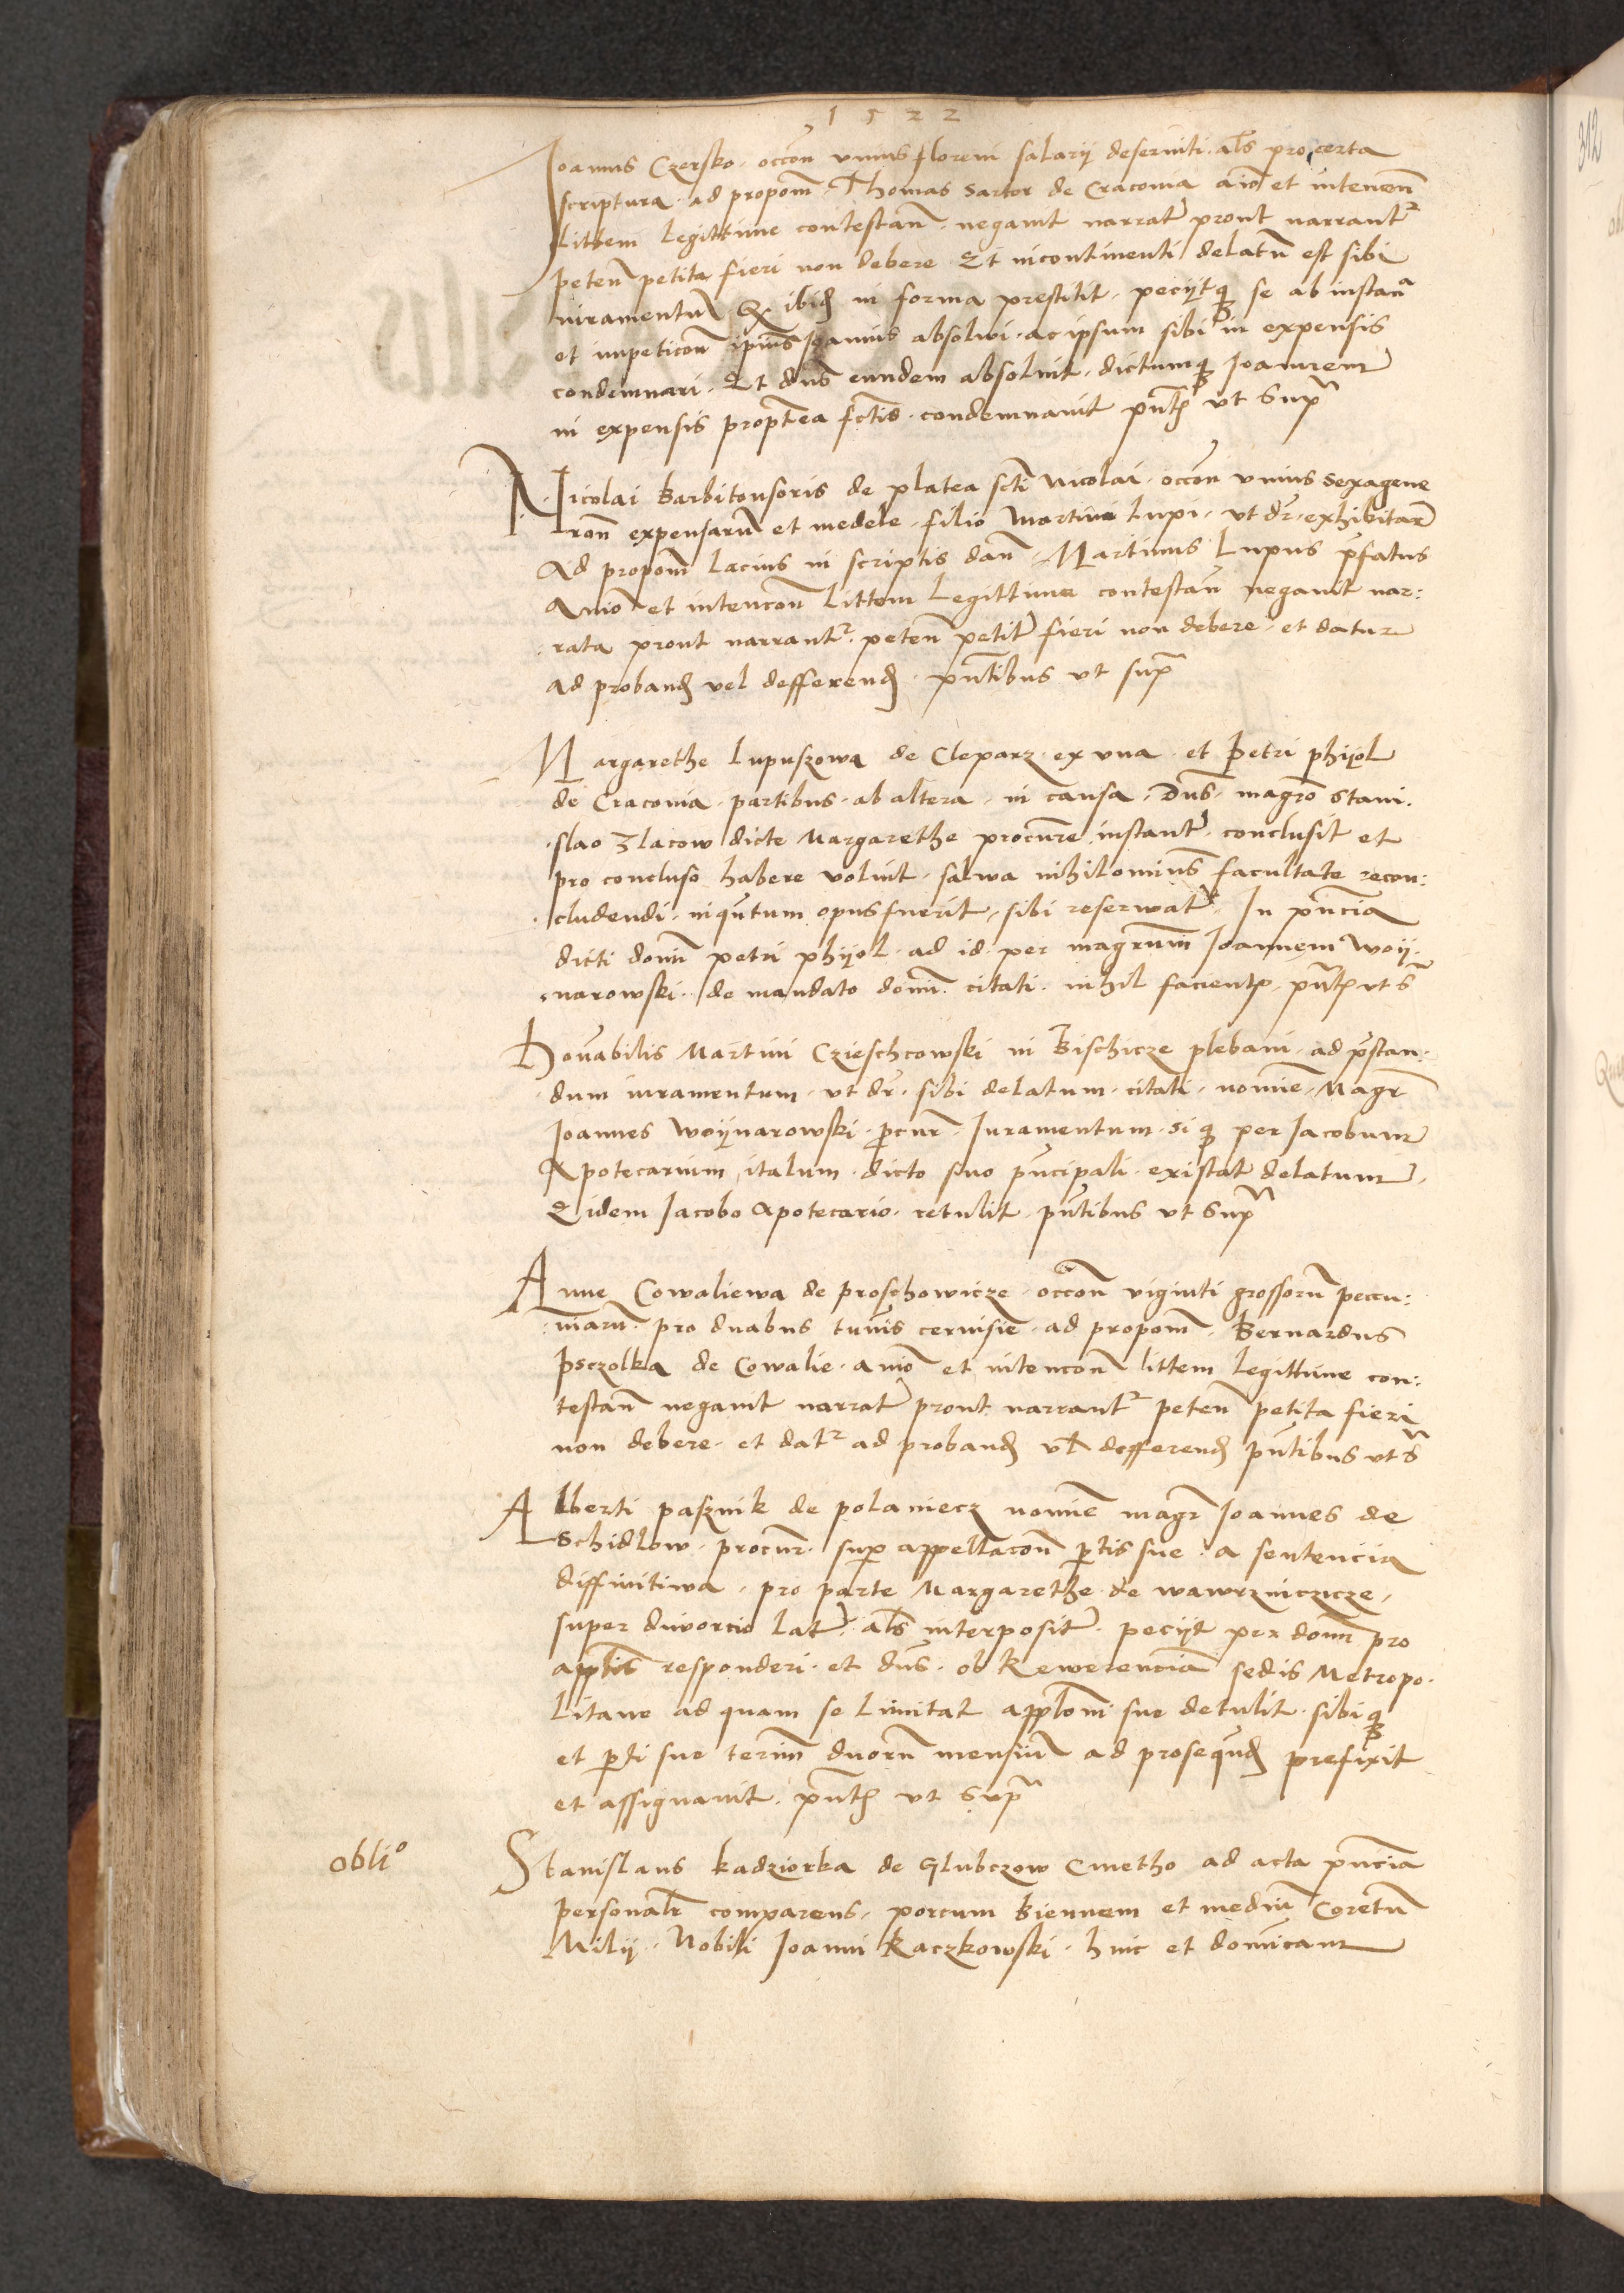 1522
Joannis Czersko occōn unius floreni salarij deserviti als pro certa
scriptura ad propom̄ Thomas sartor de Cracovia aīo et intencōn
littem legittime contestan̄ negavit narrata prout narrantr
peten̄ petita fieri non debere Et incontinenti delatū est sibi
iuramentū Q ibid in forma prestitit peciitq se ab instan̄a
et impeticōn ipius Joannis absolvi ac ipsum sibi in expensis
condemnari Et dns eundem absolvit dictumq Joannem
in expensis proptea fctis condemnavit pntib ut supra
Nicolai barbitonsoris de platea scti Nicolai occōn unius sexagene
ron̄ expensarū et medele filio Martini Lupi ut dr exhibitar
Ad propom̄ lacius in scriptis dan̄ Martinus Lupus pfatus
Animo et intencōn littem legittime contestan̄ negavit nar:
rata prout narrantr peten̄ petita fieri non debere et datur
ad proband vel defferend pntibus ut supra
Margarethe Lupuszowa de Cleparz ex una et Petri phijol
de Cracovia partibus ab altera in causa Dns magro Stani
slao Zlacow dicte Margarethe procure instante conclusit et
pro concluso habere voluit salwa nihilominus facultate recon:
cludendi inqntum opus fuerit sibi reserwata In pncia
dicti domi petri phijol ad id per magrum Joannem Woij
narowski de mandato domi citati nihil facientis pntib ut s
Honabilis Martini Czieschcowski in Bischicze plebani ad pstan:
dum iuramentum ut dr sibi delatum citati nomie Magr
Joannes Woijnarowski pcur Iuramentum si q per Jacobum
Apotecarium italum dicto suo pncipali existat delatum
Eidem Jacobo Apotecario retulit pntibus ut supra
Anne Cowaliewa de Proschowicze occōn viginti grossorū peccu:
niarū pro duabus tunis cervisie ad propom̄ Bernardus
Psczolka de Cowalie animo et intencōn littem legittime con:
testan̄ negavit narrata prout narrantr peten̄ petita fieri
non debere et datr ad proband vl defferend pntibus ut s
Alberti pasznik de polaniecz nomie magr Joannes de
Schidlow procur sup appellacōn ptis sue a sentencia
diffinitiwa pro parte Margarethe de wawrzniczicze
super divorcio lata als interposita peciit per domi pro
applis responderi et dns ob Rewerencia sedis Metropo
litane ad quam se limitat applōni sue detulit sibiq
et pti sue termi duorū mensiū ad proseqund prefixit
et assignavit pntib ut supra
oblio
Stanislaus kadziorka de Glubczow Cmetho ad acta pncia
personalr comparens porcum biennem et mediū Coretū
Milij Nobili Joanni Raczkowski hinc et domicam